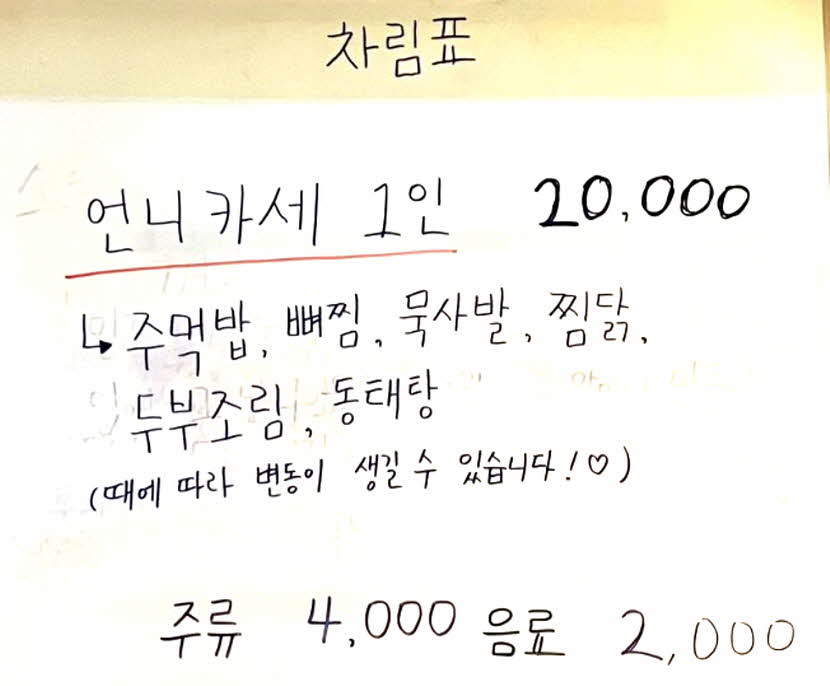 차림표
언니카세 1인 20,000
↳ 주먹밥, 뼈찜, 묵사발, 찜닭,
두부조림, 동태탕
(때에 따라 변동이 생길 수 있습니다!♡)
주류 4,000 음료 2,000